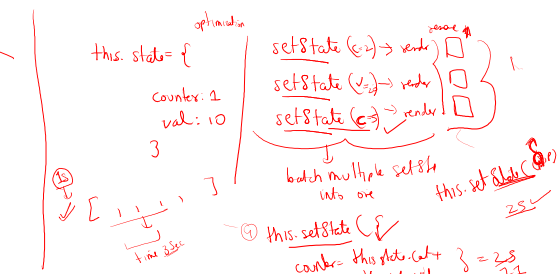 optimization
this.state = {
counter: 1
val: 10
}
1s
[ , , , , ]
time 3sec
setState (c=2) → render
setState (v=20) → render
setState (c=3) → render
batch multiple setState
into one
this.setState(
2s
4
this.setState ({
counter = this.state.
} = 2s